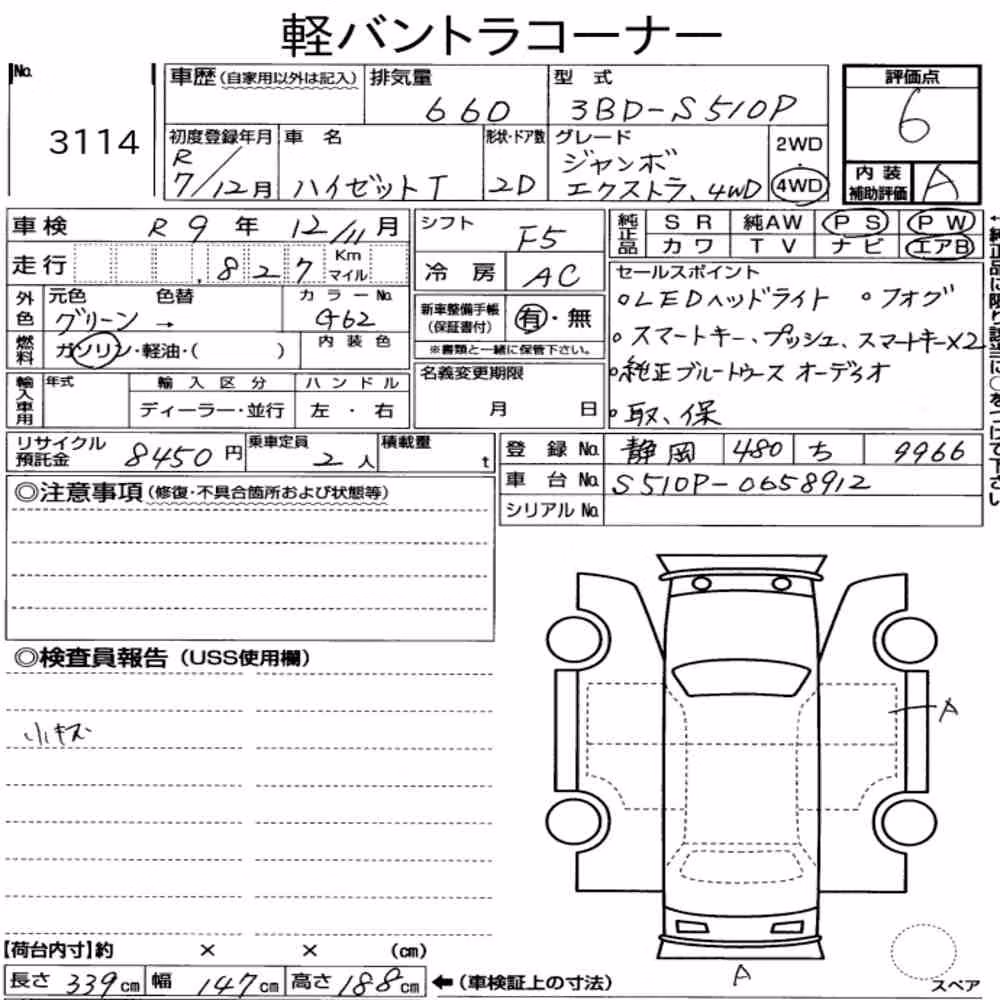 軽バントラコーナー
No. 3114
車歴(自家用以外は記入)
排気量 660
型式 3BD-S510P
評価点 6
初度登録年月 R7/12月
車名 ハイゼットT
形状・ドア数 2D
グレード ジャンボ エクストラ、4WD
2WD・4WD
内装補助評価 A
車検 R9年12/11月
シフト F5
純正品 SR 純AW PS PW
カワ TV ナビ エアB
走行 827 Km マイル
冷房 AC
セールスポイント
○LEDヘッドライト ○フォグ
○スマートキー、プッシュ、スマートキー×2
○純正ブルートゥース オーディオ
○取、保
←純正品に限り該当に○をつけて下さい
外色 元色 グリーン → 色替 カラーNo. G62
新車整備手帳(保証書付) 有・無
※書類と一緒に保管下さい。
燃料 ガソリン・軽油・( ) 内装色
名義変更期限 月 日
輸入車用 年式 輸入区分 ハンドル
ディーラー・並行 左・右
リサイクル預託金 8450円
乗車定員 2人
積載量 t
登録No. 静岡 480 ち 9966
車台No. S510P-0658912
シリアルNo.
◎注意事項(修復・不具合箇所および状態等)
◎検査員報告(USS使用欄)
小キズ
A
A
スペア
【荷台内寸】約 × × (cm)
長さ 339cm 幅 147cm 高さ 188cm ←(車検証上の寸法)